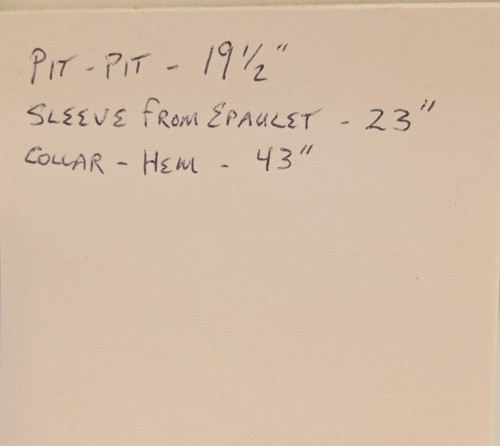 PIT - PIT - 19 1/2"
SLEEVE FROM EPAULET - 23"
COLLAR - HEM - 43"